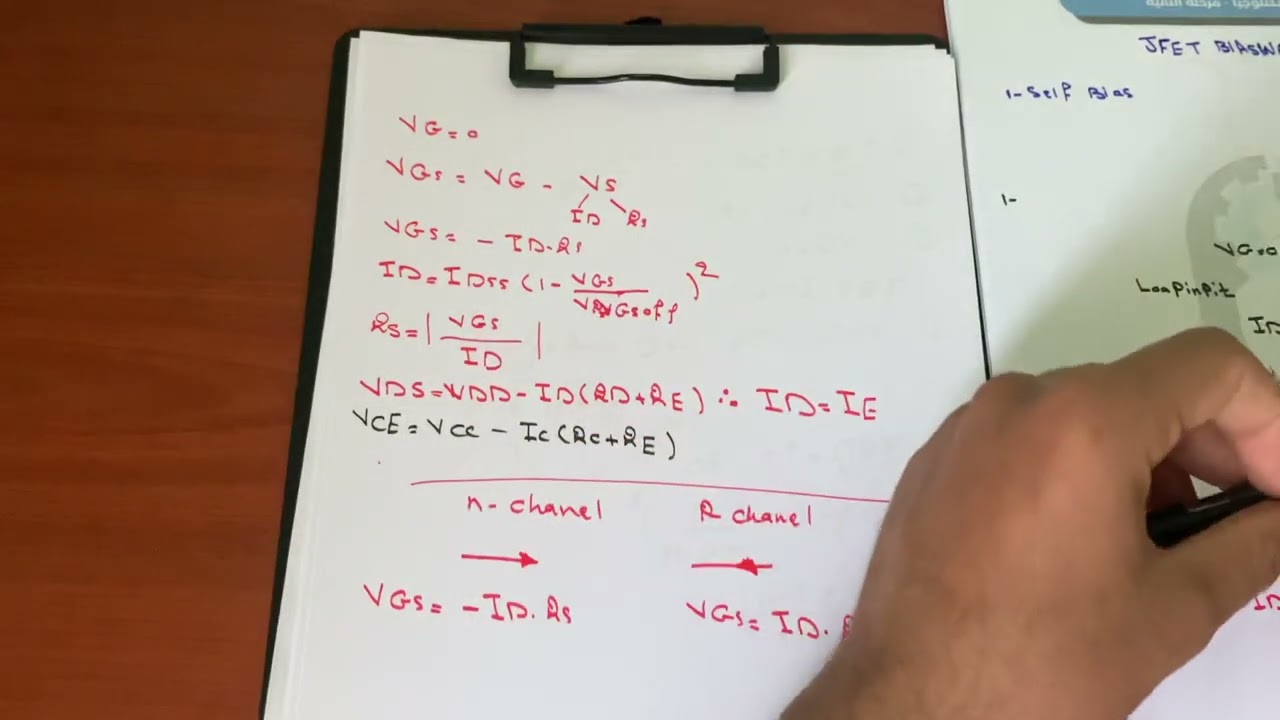 VG=0
VGs = VG - VS
ID Rs
VGs= - ID.Rs
ID=IDss (1- VGs / VGsoff )2
Rs=| VGs / ID |
VDS=VDD-ID(RD+RE) ∴ ID=IE
VCE=VCC - Ic(Rc+RE)
n- chanel R chanel
VGs= -ID.Rs VGs= ID.
JFET
1- Self Bias
1-
VG=0
ID
ID